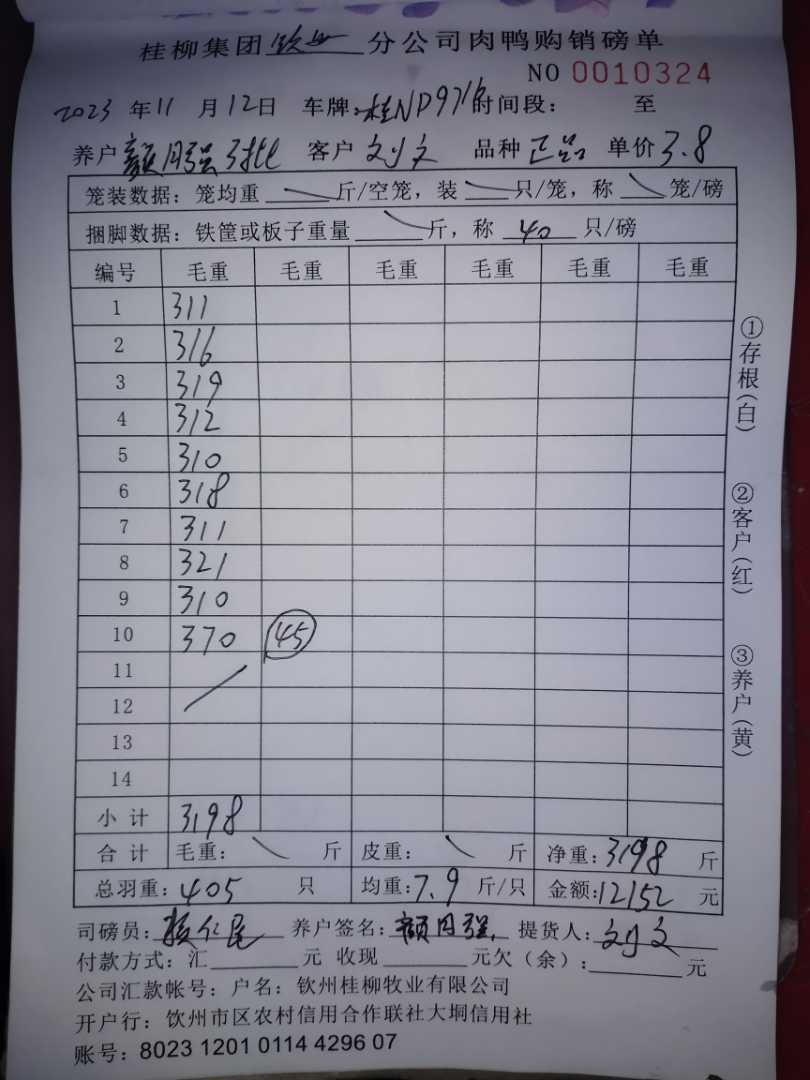 桂柳集团钦州分公司肉鸭购销磅单
NO 0010324
2023年11月12日 车牌:桂ND971 时间段: 至
养户 颜月强 客户 刘文 品种 正品 单价3.8
笼装数据:笼均重 斤/空笼,装 只/笼,称 笼/磅
捆脚数据:铁筐或板子重量 斤,称 40 只/磅
编号 毛重 毛重 毛重 毛重 毛重 毛重
1 311
2 316
3 319
4 312
5 310
6 318
7 311
8 321
9 310
10 370 45
11
12
13
14
小计 3198
合计 毛重: 斤 皮重: 斤 净重:3198 斤
总羽重:405 只 均重:7.9 斤/只 金额:12152 元
司磅员: 养户签名:颜月强 提货人:刘文
付款方式:汇 元 收现 元欠(余): 元
公司汇款帐号:户名:钦州桂柳牧业有限公司
开户行:饮州市区农村信用合作联社大垌信用社
账号:8023 1201 0114 4296 07
①存根(白)
②客户(红)
③养户(黄)